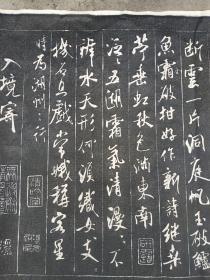 断雲一片洞庭帆玉破鱸
魚霜破柑好作新詩继桑
苧垂虹秋色満東南
泛〻五湖霜氣清漫〻不
辨水天形何須織女支
機石且戲常娥稱客星
時為湖州之行
入境寄